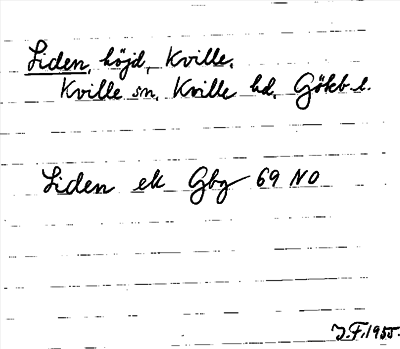 Liden, höjd, Kville.
Kville sn. Kville hd. Gökb. l.
Liden ek Gbg 69 NO
J.F. 1955.